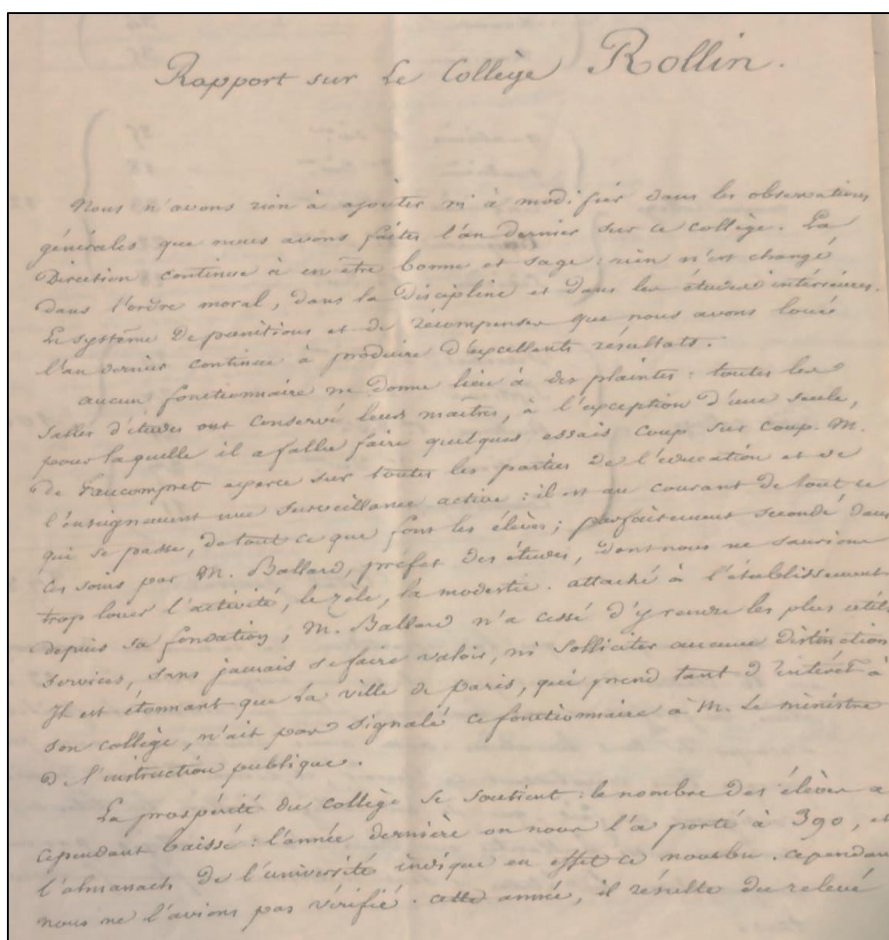 Rapport sur Le Collège Rollin.
Nous n'avons rien à ajouter ni à modifier dans les observations
générales que nous avons faites l'an dernier sur ce collège. La
Direction continue à en être bonne et sage : rien n'est changé
dans l'ordre moral, dans la discipline et dans les études intérieures.
Le système de punitions et de récompenses que nous avons loué
l'an dernier continue à produire d'excellents résultats.
aucun fonctionnaire ne donne lieu à des plaintes : toutes les
salles d'études ont conservé leurs maîtres, à l'exception d'une seule,
pour laquelle il a fallu faire quelques essais coup sur coup. M.
De Faucompret exerce sur toutes les parties de l'éducation et de
l'enseignement une surveillance active : il est au courant de tout ce
qui se passe, de tout ce que font les élèves ; parfaitement secondé dans
ces soins par M. Ballard, préfet des études, dont nous ne saurions
trop louer l'activité, le zèle, la modestie. attaché à l'établissement
depuis sa fondation, M. Ballard n'a cessé d'y rendre les plus utiles
services, sans jamais se faire valoir, ni solliciter aucune distinction
Il est étonnant que la ville de Paris, qui prend tant d'intérêt à
son collège, n'ait pas signalé ce fonctionnaire à M. Le ministre
D l'instruction publique.
La prospérité du collège se soutient : le nombre des élèves a
cependant baissé : l'année dernière on nous l'a porté à 390, et
l'almanach de l'université indique en effet ce nombre. cependant
nous ne l'avions pas vérifié. cette année, il résulte du relevé